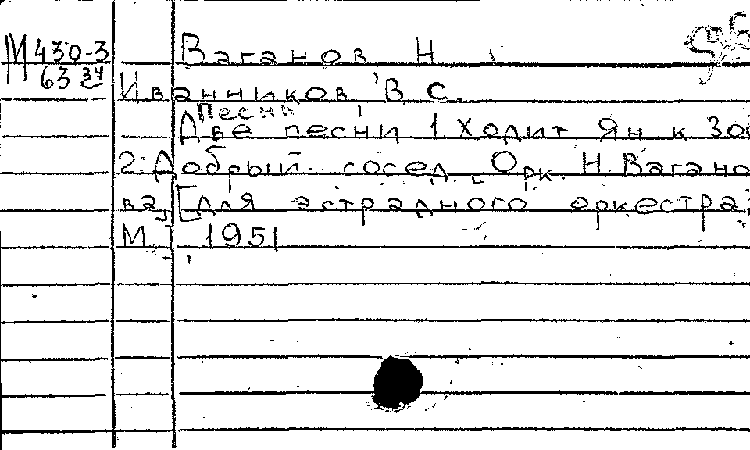 М 430-3 Ваганов Н
63 34 Иванников В С.
Песни
Две песни 1 Ходит Ян к Зо
2. Добрый сосед. Орк. Н. Вагано
ва, [для эстрадного оркестра]
М., 1951